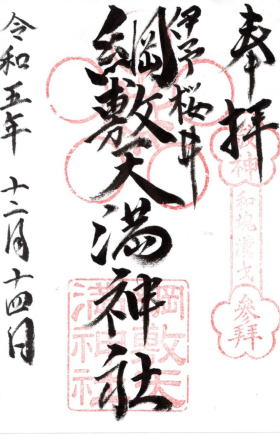 奉拝
伊予桜井
綱敷天満神社
令和五年 十二月十四日
神
和魂漢才
参拝
綱敷天
満神社